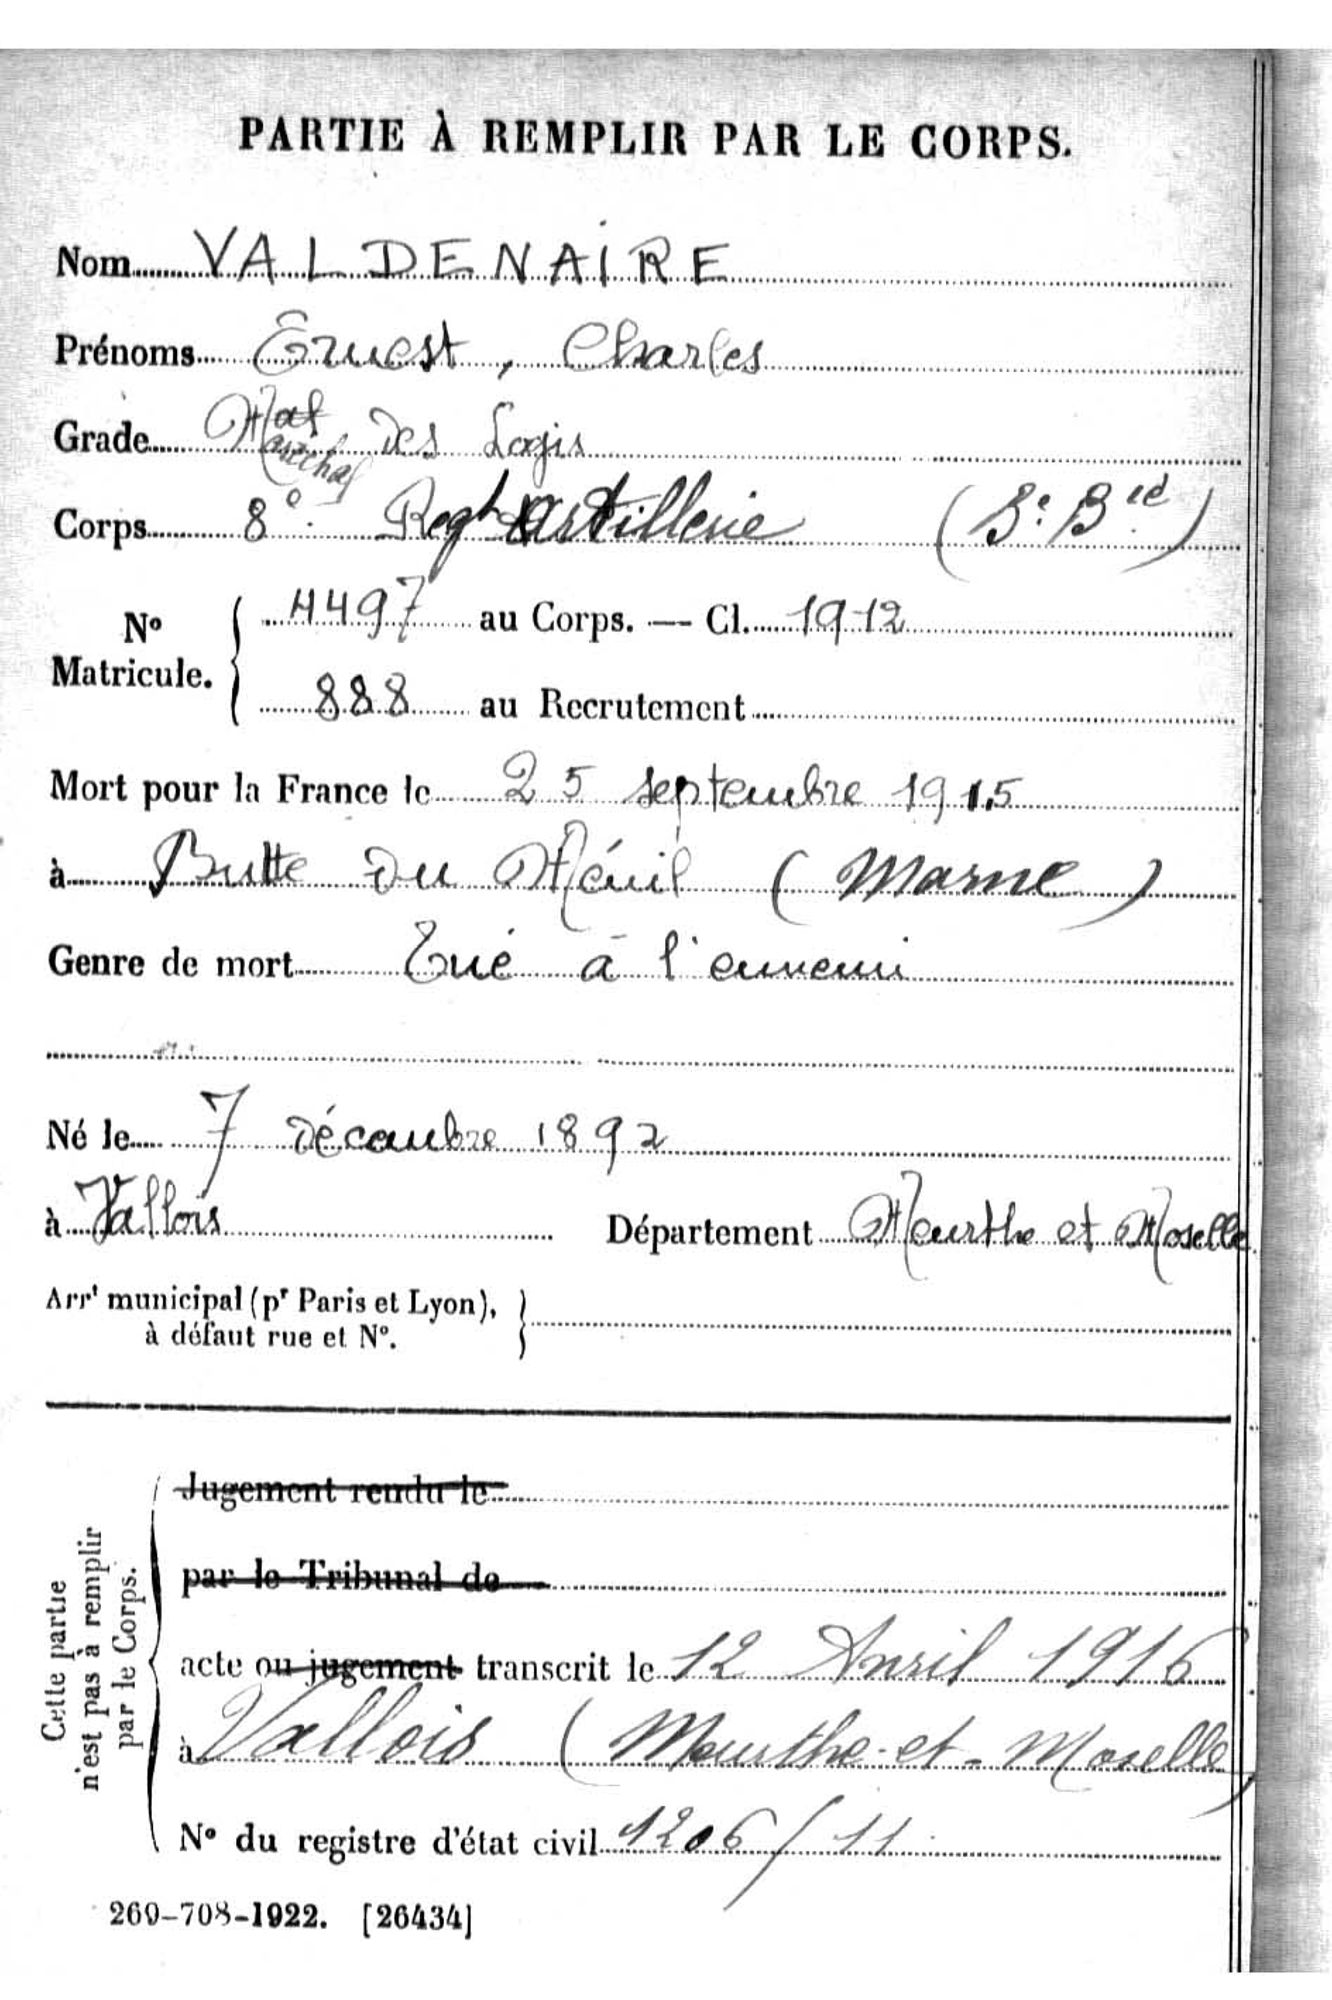 PARTIE À REMPLIR PAR LE CORPS.
Nom VALDENAIRE
Prénoms Ernest, Charles
Grade Mal des Logis
Maréchal
Corps 8e Regt Artillerie (3e Bie)
No Matricule. 4497 au Corps. — Cl. 1912
888 au Recrutement
Mort pour la France le 25 septembre 1915
à Butte du Ménil (Marne)
Genre de mort Tué à l'ennemi
Né le 7 Décembre 1892
à Vallois Département Meurthe et Moselle
Arrt municipal (pr Paris et Lyon),
à défaut rue et No.
Cette partie
n'est pas à remplir
par le Corps.
Jugement rendu le
par le Tribunal de
acte ou jugement transcrit le 12 Avril 1916
à Vallois (Meurthe-et-Moselle)
No du registre d'état civil 1206/11
269-708-1922. [26434]